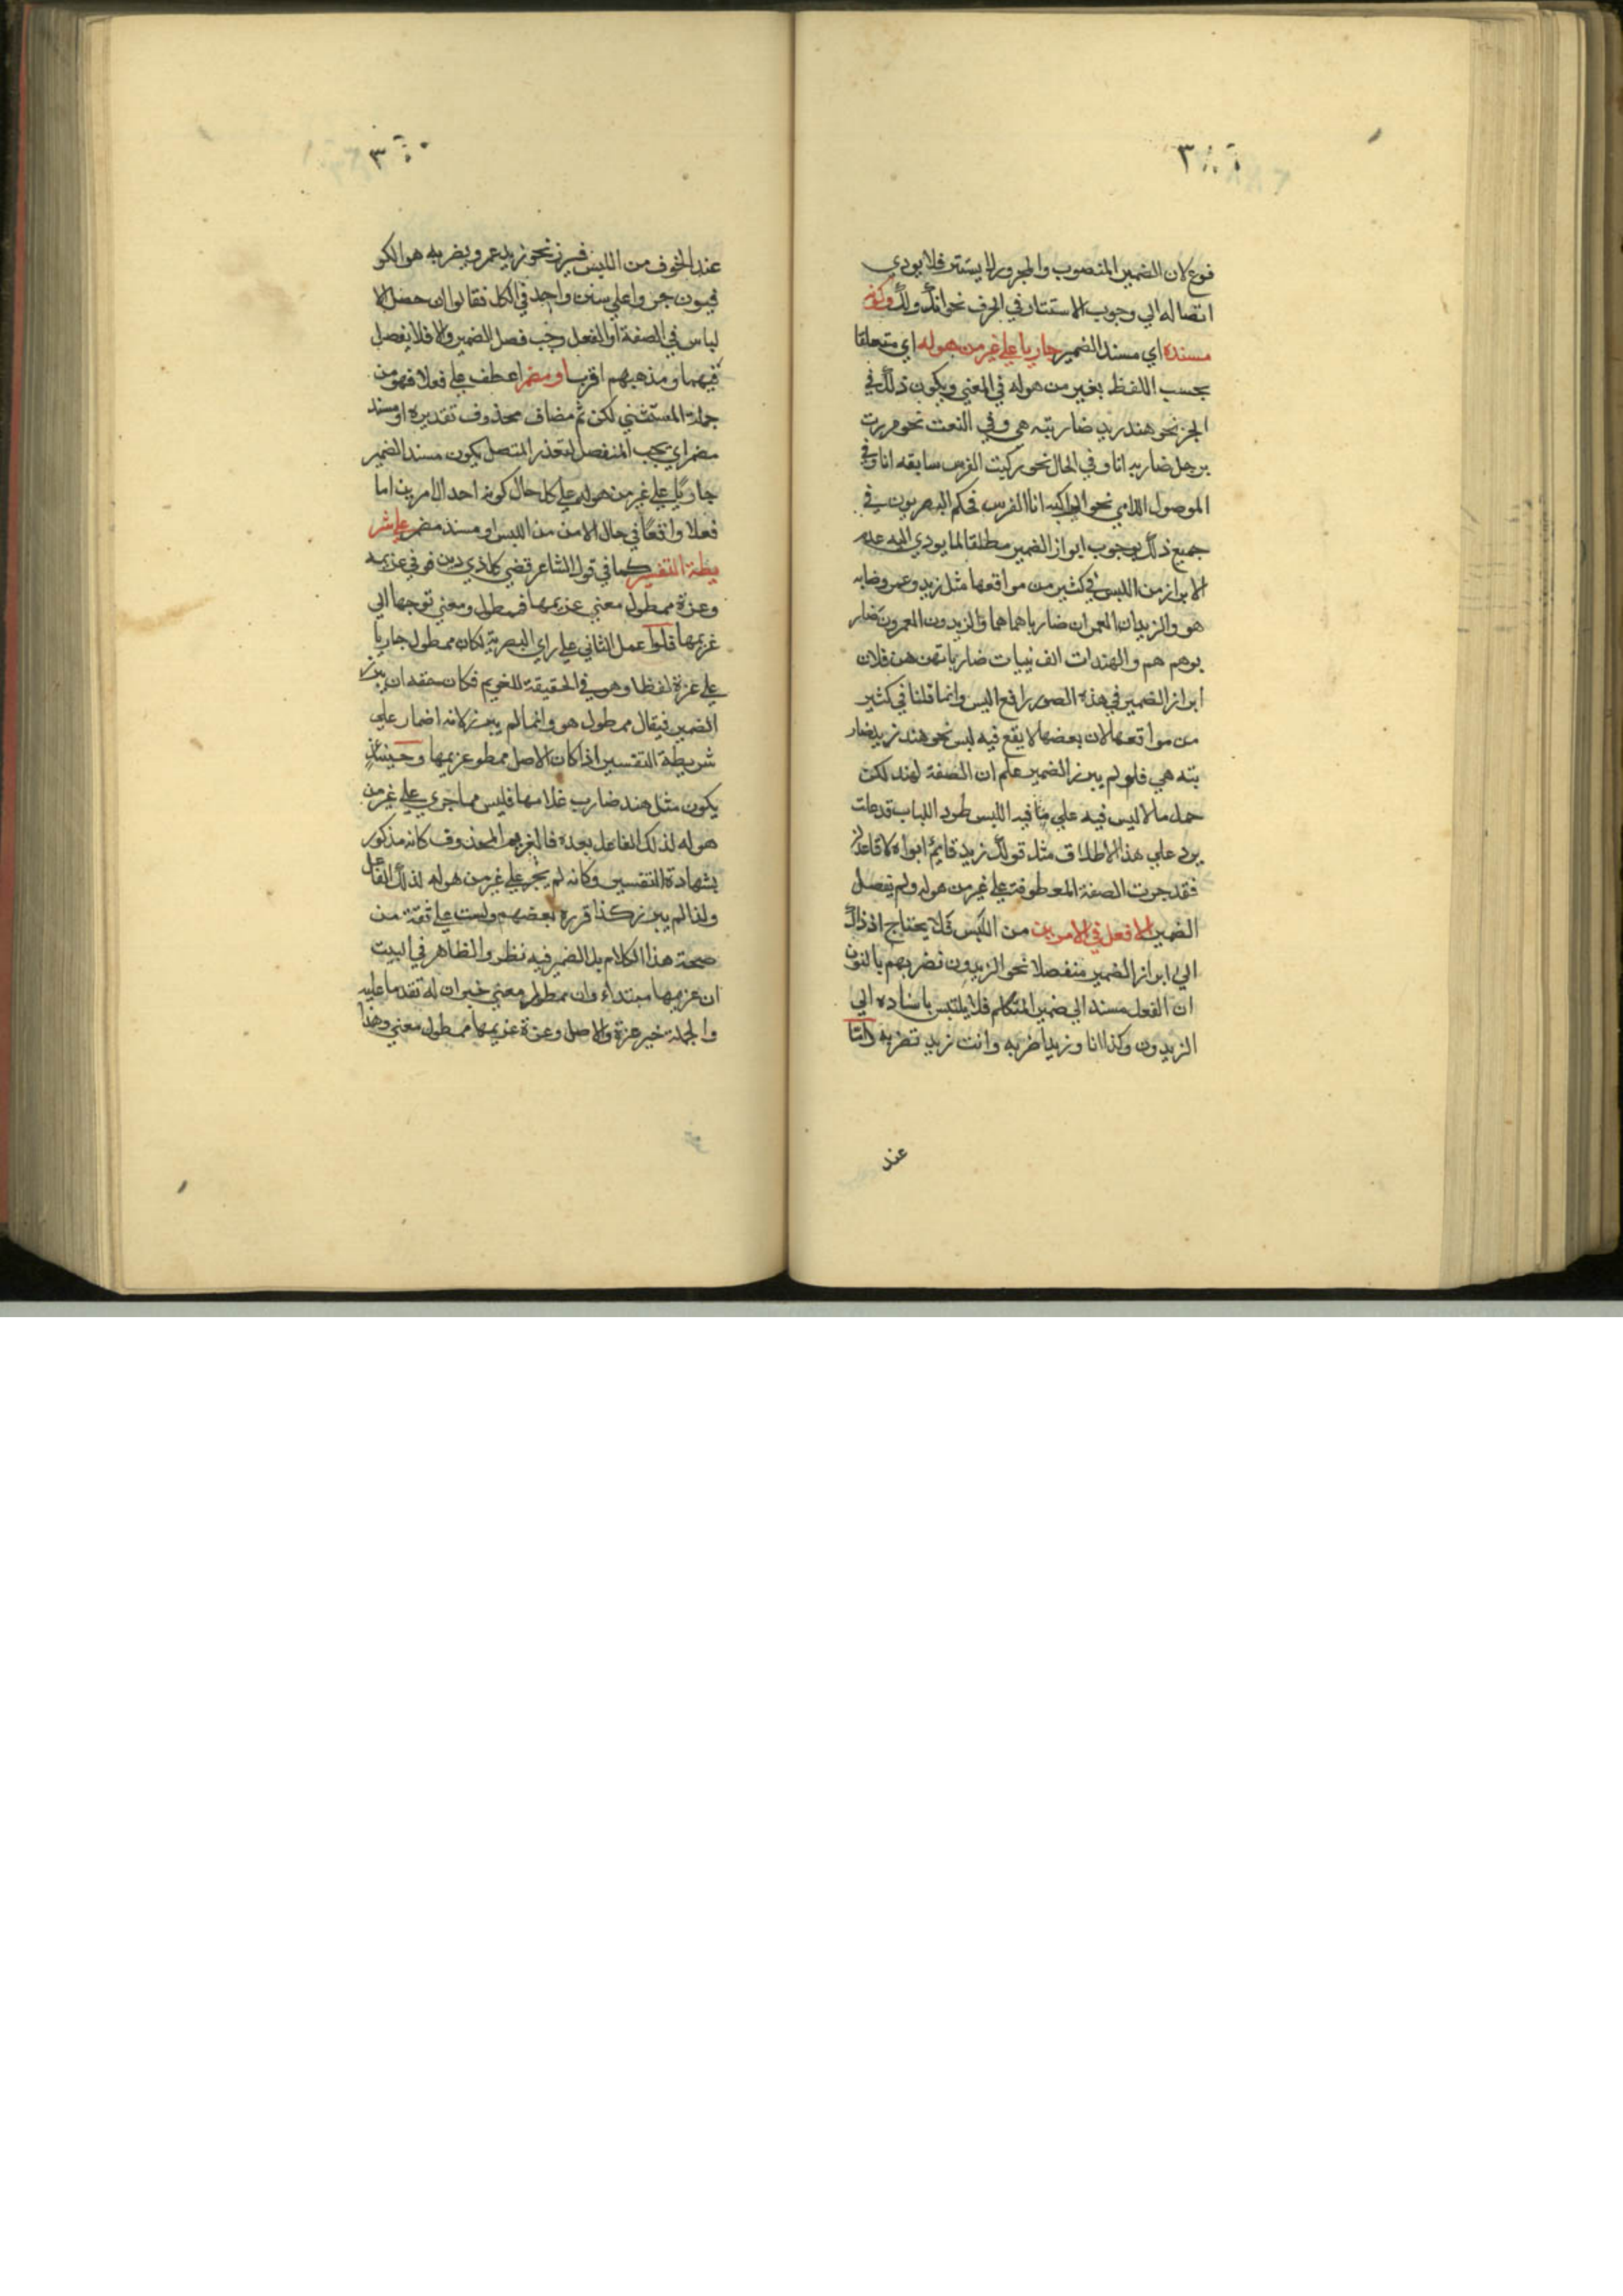 فوع لان الضمير المنصوب والمجرور لا يستتر فلا يودي
اتصاله الي وجوب الاستتار في الحرف نحو انك ولك وكونه
مسنده اي مسند الضمير جاريا علي غير من هو له اي متعلقا
بحسب اللفظ بغير من هو له في المعني ويكون ذلك في
الخبر نحو هند زيد ضاربته هي وفي النعت نحو مررت
برجل ضاربه انا وفي الحال نحو ركبت الفرس سابقه انا وفي
الموصول اللامي نحو الراكبه انا الفرس فحكم البصريون في
جميع ذلك بوجوب ابراز الضمير مطلقا لما يودي اليه عدم
الابراز من اللبس في كثير من مواقعها مثل زيد وعمرو ضابه
هو والزيدان العمران ضارباهما هما والزيدون العمرون ضار
بوهم هم والهندات الزينبيات ضارباتهن هن فلان
ابراز الضمير في هذه الصور رافع اللبس وانما قلنا في كثير
من مواقعها لان بعضها لا يقع فيه لبس نحو هند زيد ضار
بته هي فلو لم يبرز الضمير علم ان الصفة لهند لكن
حمل ما لا لبس فيه علي ما فيه اللبس طرد اللباب قد علت
يرد علي هذا الاطلاق مثل قولك زيد قائم ابواه لا قاعدين
فقد جرت الصفة المعطوفة علي غير من هو له ولم يفصل
الضمير الا فعل في الامرين من اللبس فلا يحتاج اذ ذاك
الي ابراز الضمير منفصلا نحو الزيدون نضربهم بالنون
ان الفعل مسند الي ضمير المتكلم فلا يلتبس باسناده الي
الزيدون وكذا انا وزيد اضربه وانت زيد تضربه واما
عند
عند الخوف من اللبس فيبرز نحو زيد عمرو يضربه هو الكو
فيون جروا علي سنن واحد في الكل فقالوا ان حصل الا
لباس في الصفة او الفعل وجب فصل الضمير والا فلا يفصل
فيهما ومذهبهم اقرب او مضمرا عطف علي فعلا فهو من
جملة المستثني لكن ثم مضاف محذوف تقديره او مسند
مضمر اي يجب المنفصل لتعذر المتصل يكون مسند الضمير
جاريا علي غير من هو له علي كل حال كونه احد الامرين اما
فعلا واقعا في حال الامن من اللبس او مسند مضمر علي شر
يطة التفسير كما في قول الشاعر قضي كل ذي دين فوفي غريمه
وعزة ممطول معني غريمها فممطول ومعني توجها الي
غريمها فلو اعمل الثاني علي راي البصرية لكان ممطول جاريا
علي عزة لفظا وهو في الحقيقة للغريم فكان حقه ان يبرز
الضمير فيقال ممطول هو وانما لم يبرز لانه اضمار علي
شريطة التفسير اذا كان الاصل ممطو غريمها وحينئذ
يكون مثل هند ضارب غلامها فليس مما جري علي غير من
هو له لذلك الفاعل بعده فالغريم المحذوف كانه مذكور
بشهادة التفسير وكانه لم يجر علي غير من هو له لذلك الفاعل
ولذا لم يبرز كذا قرره بعضهم ولست علي ثقة من
صحة هذا الكلام بل الضمير فيه نظر والظاهر في البيت
ان غريمها مبتداء وان ممطول معني خبران له تقدما عليه
والجملة خبر عزة والاصل وعزة غريمها ممطول معني وهذا